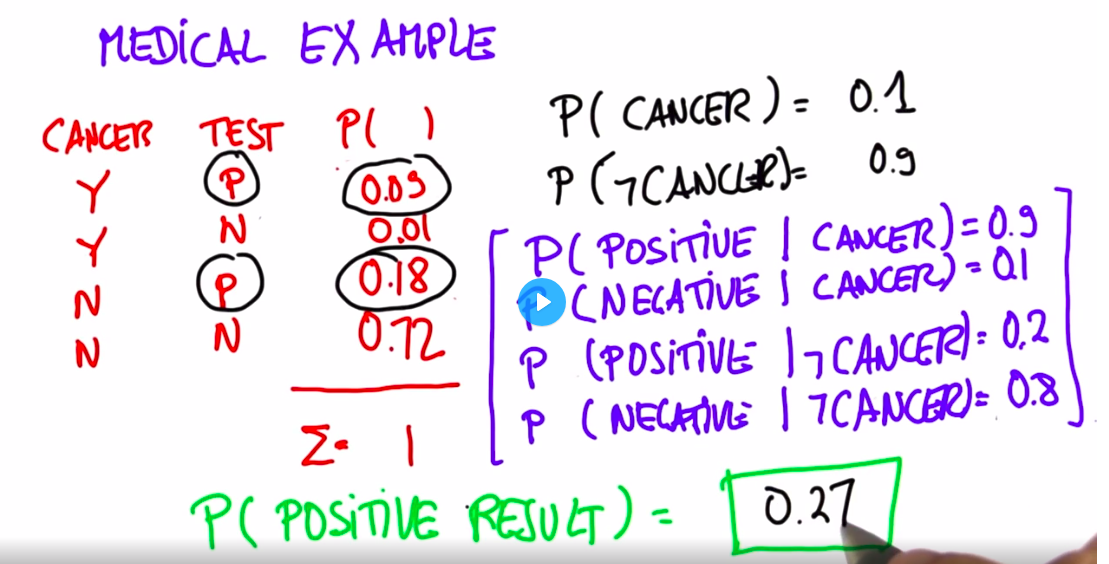 MEDICAL EXAMPLE
CANCER TEST P( )
Y P 0.09
Y N 0.01
N P 0.18
N N 0.72
Σ= 1
P( CANCER ) = 0.1
P (¬CANCER)= 0.9
P( POSITIVE | CANCER)=0.9
P (NEGATIVE | CANCER) = 0.1
P (POSITIVE |¬CANCER)= 0.2
P (NEGATIVE | ¬CANCER)= 0.8
P( POSITIVE RESULT ) = 0.27